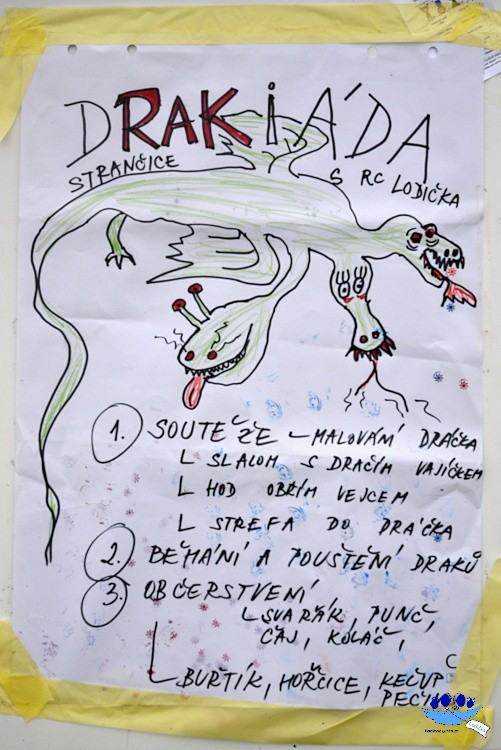 DRAKIÁDA
STRANČICE S RC LODIČKA
1. SOUTĚŽE - MALOVÁNÍ DRÁČKA
SLALOM S DRAČÍM VAJÍČKEM
HOD OBŘÍM VEJCEM
STREFA DO DRÁČKA
2. BĚHÁNÍ A POUŠTĚNÍ DRAKŮ
3. OBČERSTVENÍ
SVAŘÁK, PUNČ,
ČAJ, KOLÁČ,
BURTÍK, HOŘČICE, KEČUP